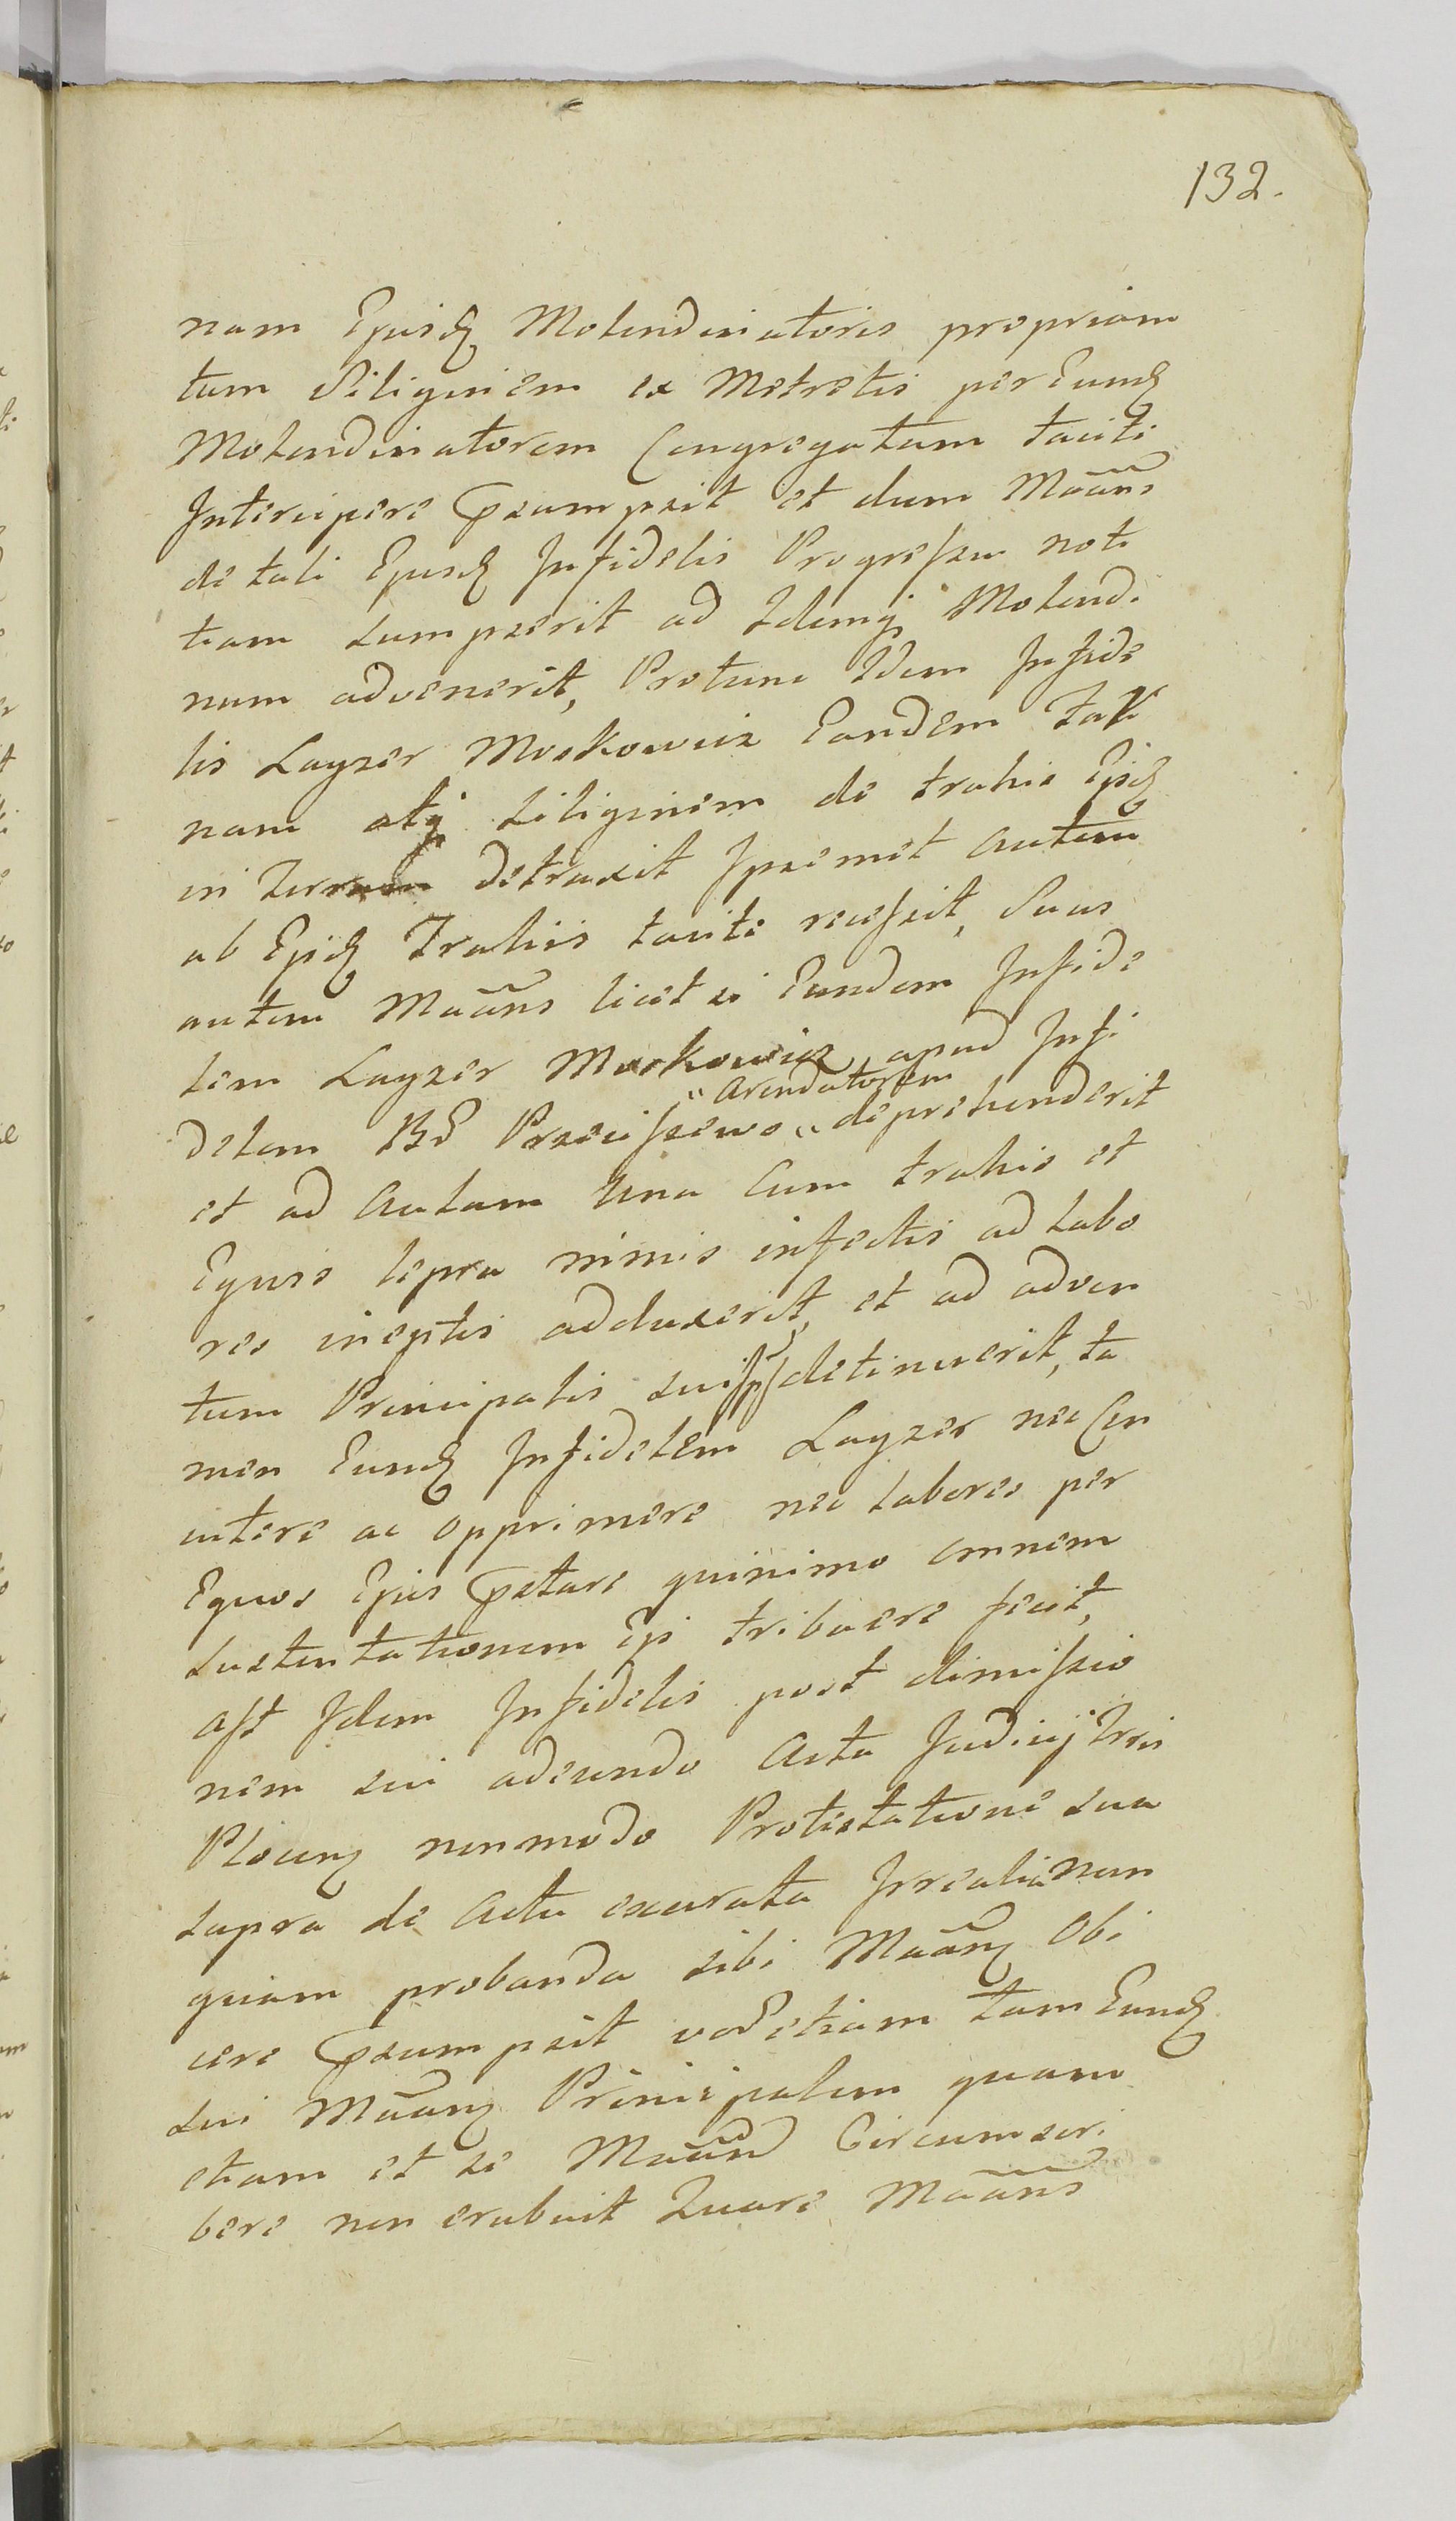 132.
nam Ejusdē Molendinatoris propriam
tum Siliginem ex Metretis per Eundē
Molendinatorem Congregatam tacite
Intercipere Præsumpsit et dum Māāns
de tali Ejusdē Infidelis Progressu noti
tiam sumpserit ad Idemq; Molendi
num advenerit, Protunc Idem Infide
lis Layzer Moskowicz Eandem Faři
nam atq; siliginem de trahis Ejsdē
in terram detraxit Ipsemet autem
ab Ejsdē Trahis tacite recessit, Suus
autem Māāns licet si Eundem Infide
lem Layzer Moskowicz apud Infi
delem BE Przeciszewo „ Arendatorem „ deprehenderit
et ad Aulam Una Cum trahis et
Equis lepra nimis infectis ad labo
res ineptis adduxerit, et ad adven
tum Principalis sui detinuerit, ta
men Eundē Infidelem Layzer nec Con
cutere ac opprimere nec labores per
Equos Ejus Præstare quinimo omnem
sustentationem Ejs tribuere fecit,
ast Idem Infidelis post dimissio
nem sui adeundo Acta Judicij Trris
Plocen̄ non modo Protestatione sua
supra de Actu exarata Irrealia nun
quam probanda sibi Māān̄ Obi
cere Præsumpsit vod Etiam tam Eundē
sui Māān̄ Principalem quam
etiam et se Māānd Circumscri
bere non erubuit Quare Māāns